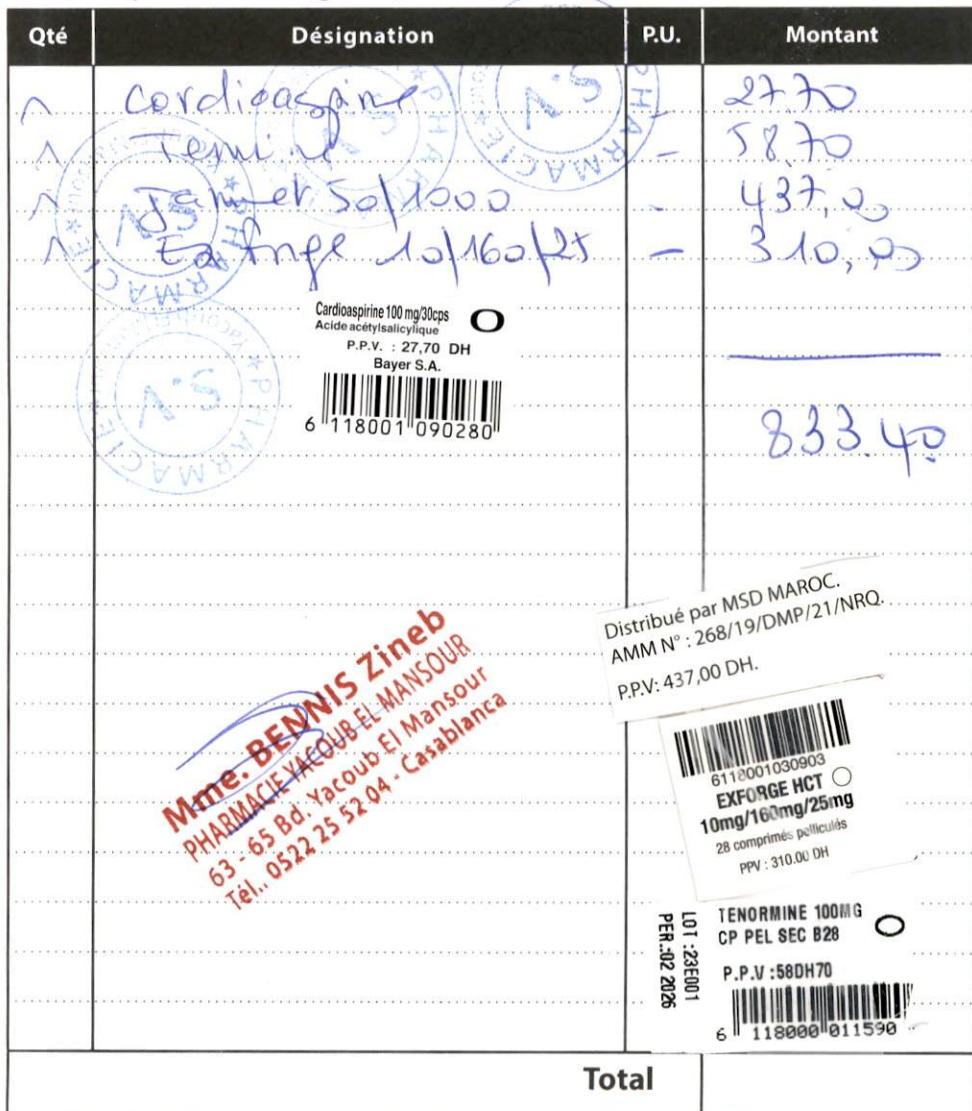 Qté Désignation P.U. Montant
1 Cardioaspirine - 27.70
1 - 58.70
1 Janumet 50/1000 - 437,00
1 Exforge 10/160/25 - 310,00
Cardioaspirine 100 mg/30cps
Acide acétylsalicylique
P.P.V. : 27,70 DH
Bayer S.A.
6 118001 090280
833.40
Mme. BENNIS Zineb
PHARMACIE YACOUB EL MANSOUR
63 - 65 Bd. Yacoub El Mansour
Tél.. 0522 25 52 04 - Casablanca
Distribué par MSD MAROC.
AMM N° : 268/19/DMP/21/NRQ.
P.P.V: 437,00 DH.
6118001030903
EXFORGE HCT
10mg/160mg/25mg
28 comprimés pelliculés
PPV : 310.00 DH
LOT :23E001
PER.:02 2026
TENORMINE 100MG
CP PEL SEC B28
P.P.V :58DH70
6 118000 011590
PHARMACIE
S.V
PHARMACIE
S.V
PHARMACIE
S.V
PHARMACIE
S.V
Total